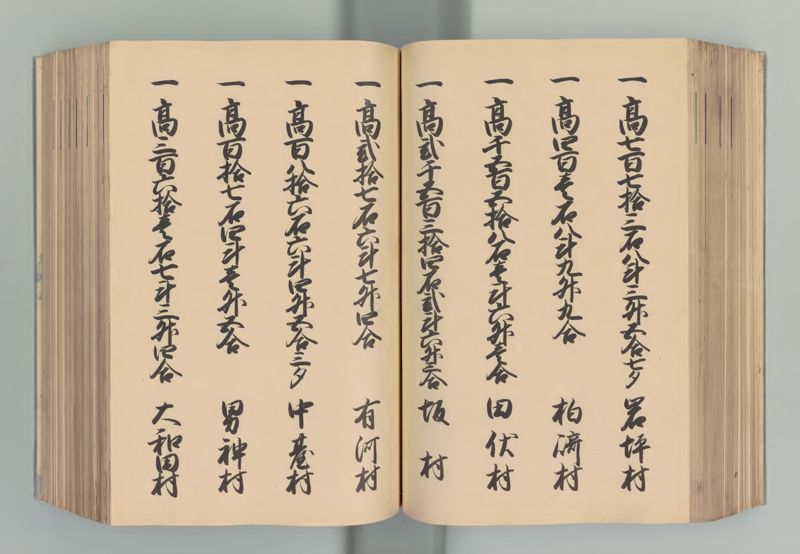 一高七百七拾三石八斗三升五合七夕 岩坪村
一高四百壱石八斗九升九合 柏崎村
一高千五百五拾八石壱斗六升壱合 田伏村
一高弐千五百三拾四石弐斗六升三合 坂村
一高弐拾七石六斗七升四合 有河村
一高百八拾六石六斗四升五合三夕 中臺村
一高百拾七石四斗壱升五合 男神村
一高三百六拾壱石七斗三升四合 大和田村